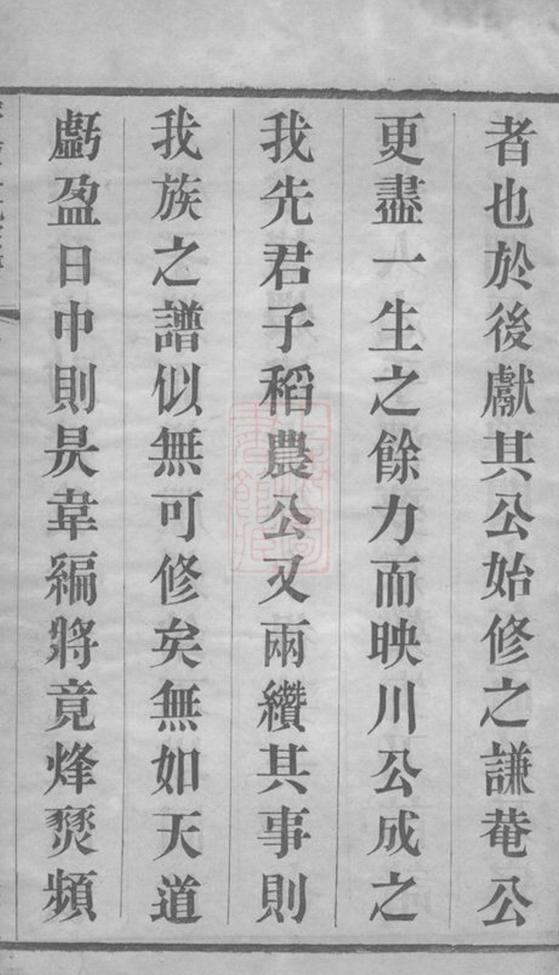 者也於後獻其公始修之謙菴公
更盡一生之餘力而映川公成之
我先君子稻農公又兩纘其事則
我族之譜似無可修矣無如天道
虧盈日中則昃韋編將竟烽燹頻